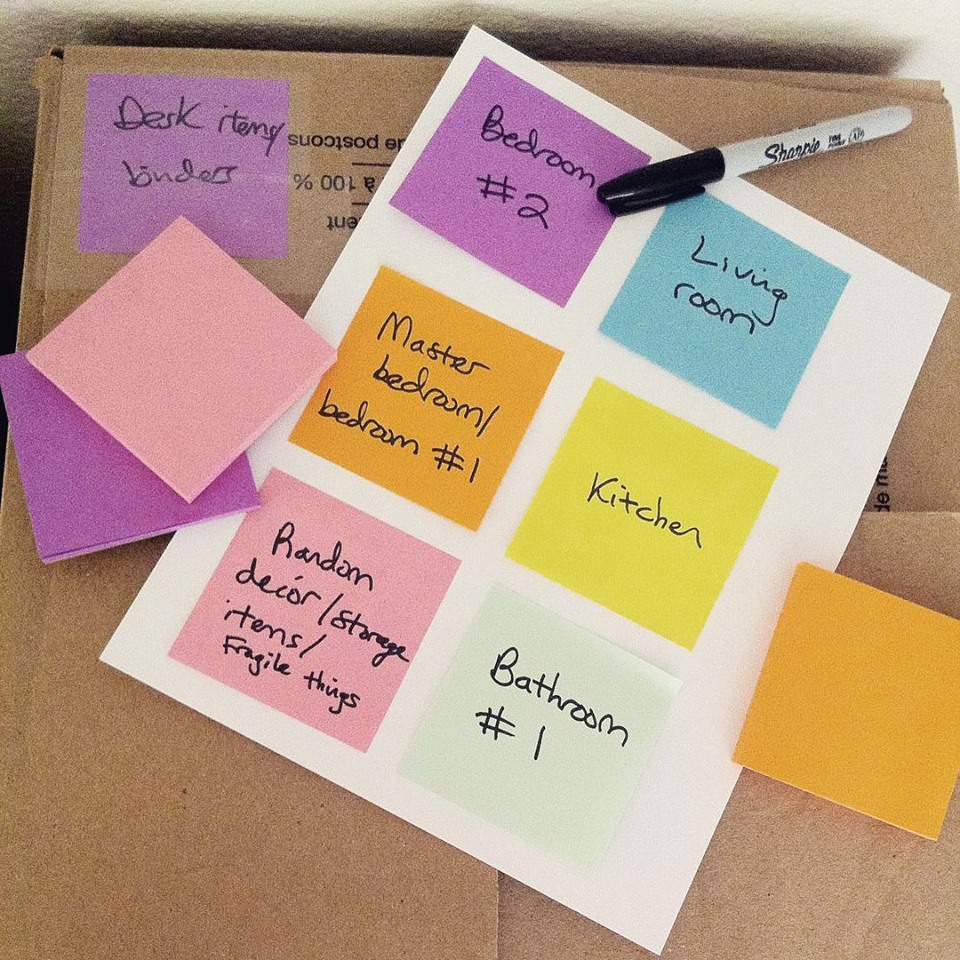 Desk items/
binders
de postcons
à 100 %
Bedroom
#2
Sharpie
Living
room
Master
bedroom/
bedroom #1
Kitchen
Random
decór/storage
items/
Fragile things
Bathroom
#1